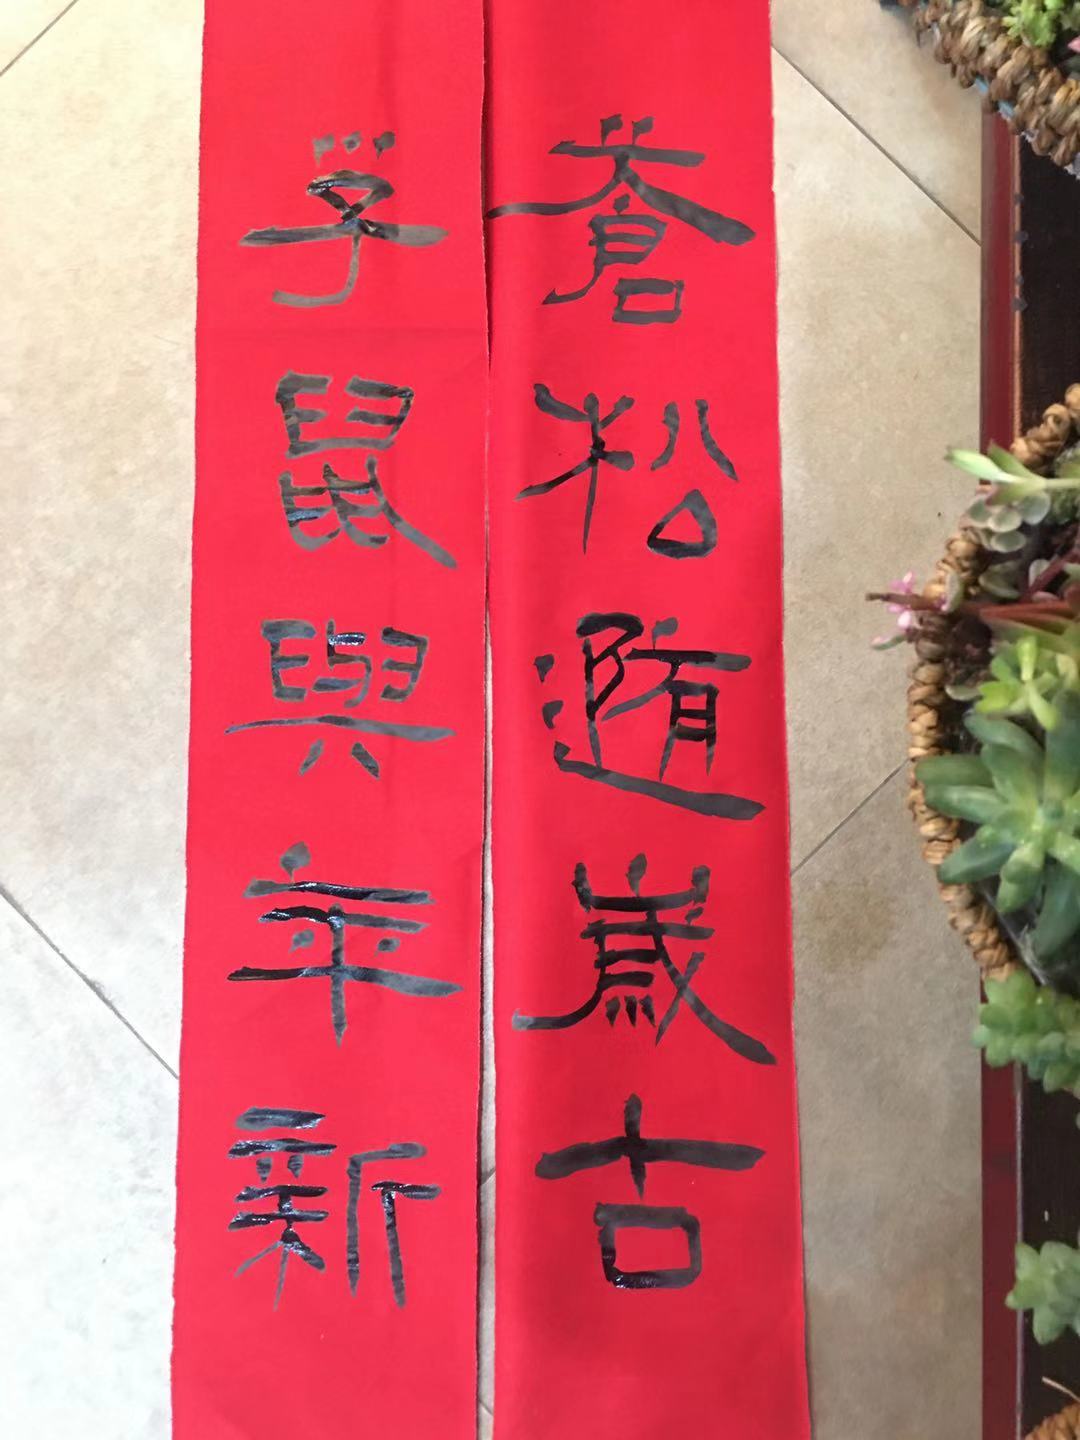 蒼松隨歲古
子鼠與年新